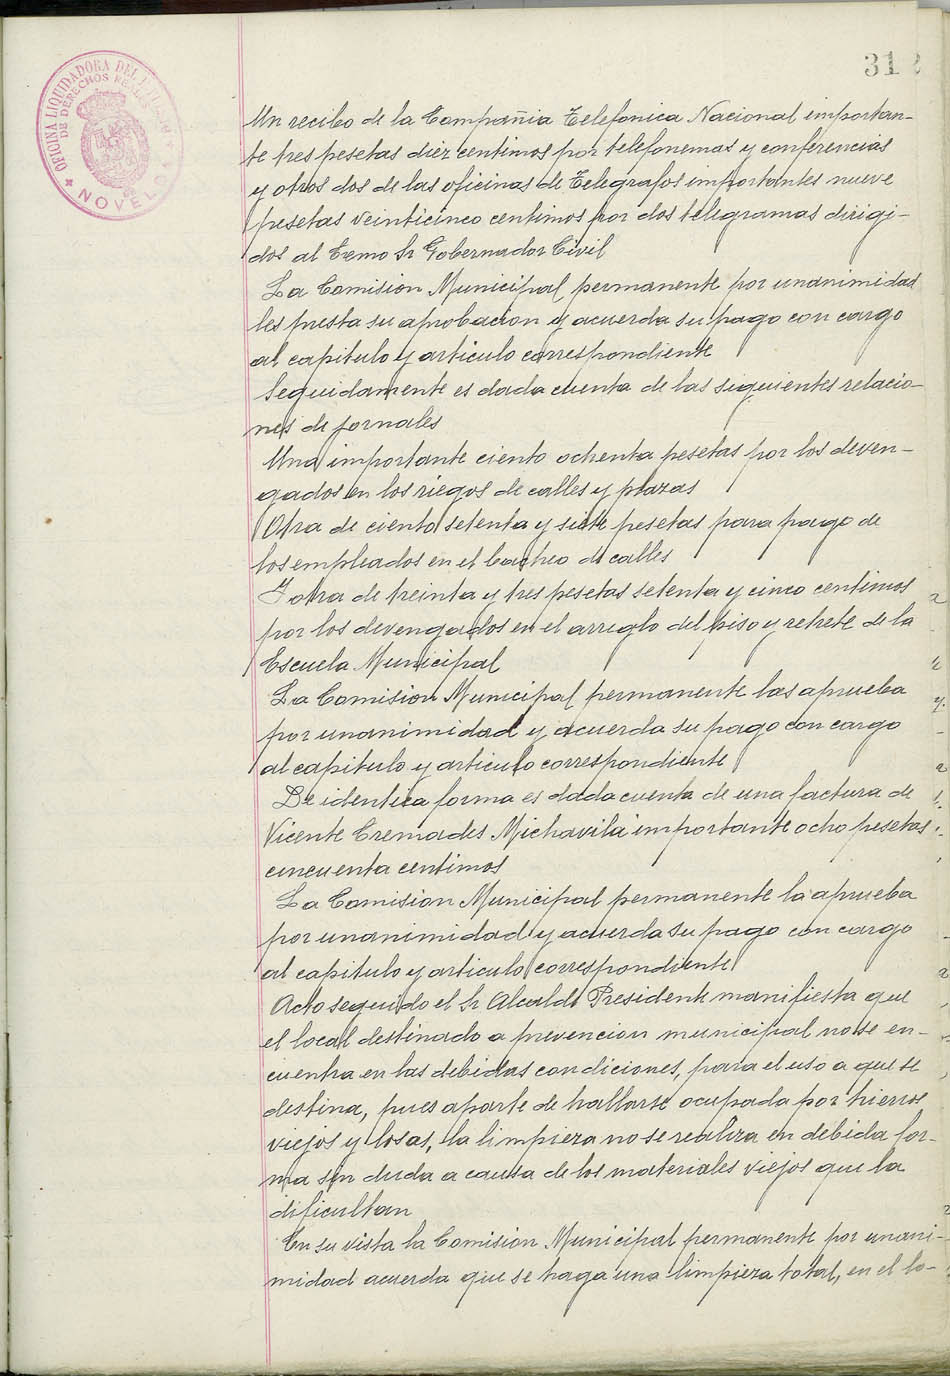 312
OFICINA LIQUIDADORA DEL
DE DERECHOS REALES
NOVELDA
Un recibo de la Compañia Telefonica Nacional importan-
te tres pesetas diez centimos por telefonemas y conferencias
y otros dos de las oficinas de Telegrafos importantes nueve
pesetas veinticinco centimos por dos telegramas dirigi-
dos al Exmo Sr Gobernador Civil
La Comision Municipal permanente por unanimidad
les presta su aprobacion y acuerda su pago con cargo
al capitulo y articulo correspondiente
Seguidamente es dada cuenta de las siguientes relacio-
nes de jornales
Una importante ciento ochenta pesetas por los deven-
gados en los riegos de calles y plazas
Otra de ciento setenta y siete pesetas para pago de
los empleados en el bacheo de calles
Y otra de treinta y tres pesetas setenta y cinco centimos
por los devengados en el arreglo del piso y retrete de la
Escuela Municipal
La Comision Municipal permanente las aprueba
por unanimidad y acuerda su pago con cargo
al capitulo y articulo correspondiente
De identica forma es dada cuenta de una factura de
Vicente Cremades Michavila importante ocho pesetas
cincuenta centimos
La Comision Municipal permanente la aprueba
por unanimidad y acuerda su pago con cargo
al capitulo y articulo correspondiente
Acto seguido el Sr Alcalde Presidente manifiesta que
el local destinado a prevencion municipal no se en-
cuentra en las debidas condiciones, para el uso a que se
destina, pues aparte de hallarse ocupada por hierros
viejos y losas, la limpieza no se realiza en debida for-
ma sin duda a causa de los materiales viejos que la
dificultan
En su vista la Comision Municipal permanente por unani-
midad acuerda que se haga una limpieza total, en el lo-